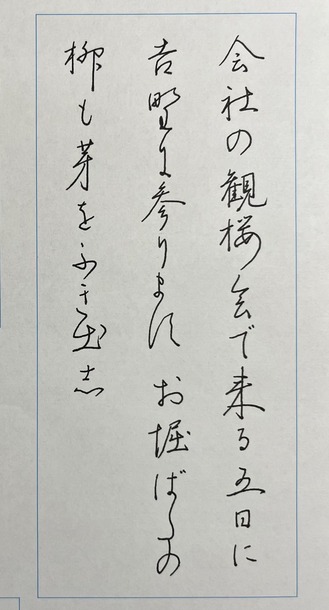 会社の観桜会で来る五日に
吉野に参ります お堀ばたの
柳も芽をふき出志